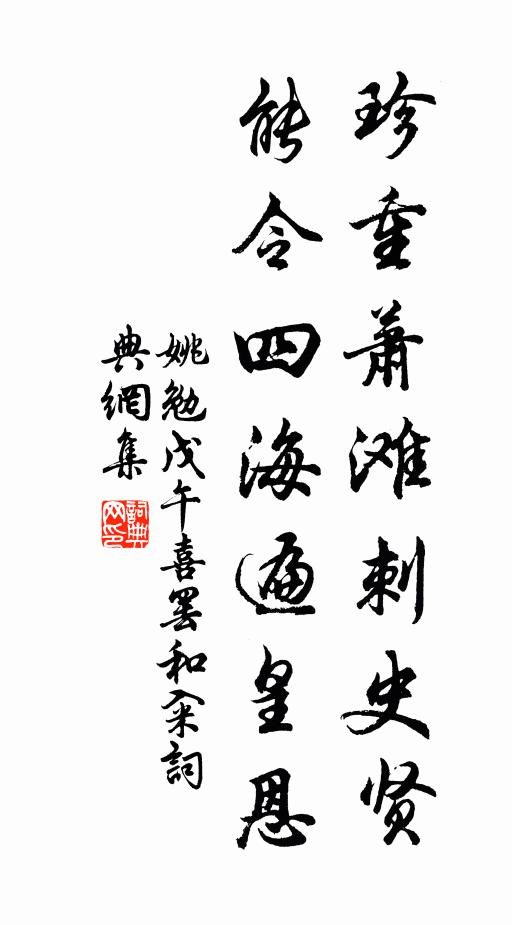 珍重萧滩刺史贤
能令四海遍皇恩
姚勉戊午喜罢和籴词
典網集
詞典网印